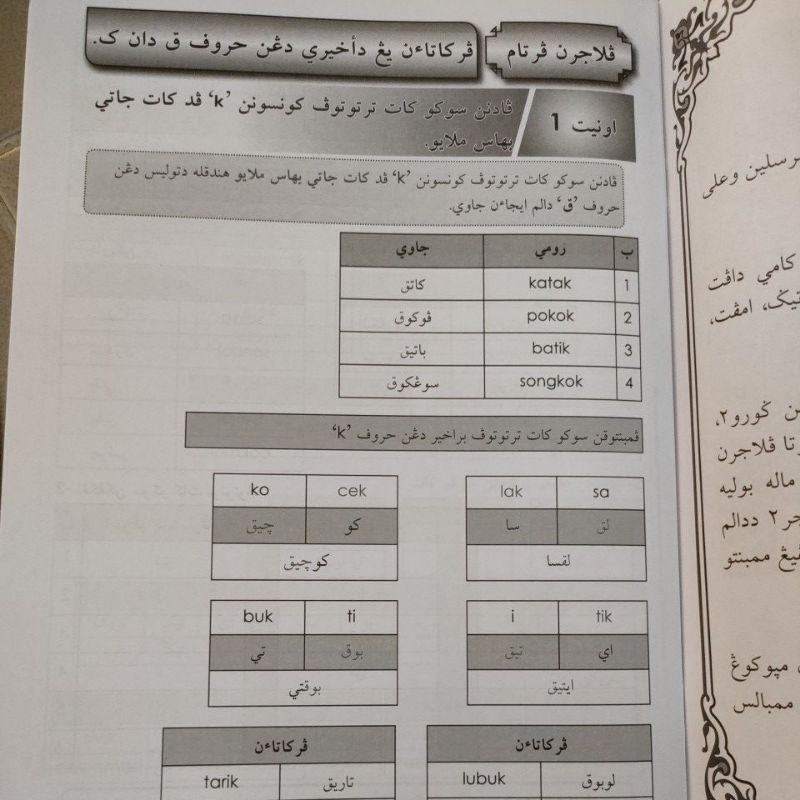 ڤلاجرن ڤرتام ڤركاتاءن يڠ دأخيري دڠن حروف ق دان ک.
اونيت 1 ڤادنن سوكو كات ترتوتوڤ كونسونن ’k‘ ڤد كات جاتي
بهاس ملايو.
ڤادنن سوكو كات ترتوتوڤ كونسونن ’k‘ ڤد كات جاتي بهاس ملايو هندقله دتوليس دڠن
حروف ’ق‘ دالم ايجاءن جاوي.
ب رومي جاوي
1 katak كاتق
2 pokok ڤوكوق
3 batik باتيق
4 songkok سوڠكوق
ڤمبنتوقن سوكو كات ترتوتوڤ براخير دڠن حروف ’k‘
sa lak
لق سا
لقسا
cek ko
كو چيق
كوچيق
tik i
اي تيق
ايتيق
ti buk
بوق تي
بوقتي
ڤركاتاءن
لوبوق lubuk
ڤركاتاءن
تاريق tarik
وعلى
كامي داڤت
امڤت،
ڤلاجرن
ماله بوليه
ددالم
ممبنتو
ممبالس